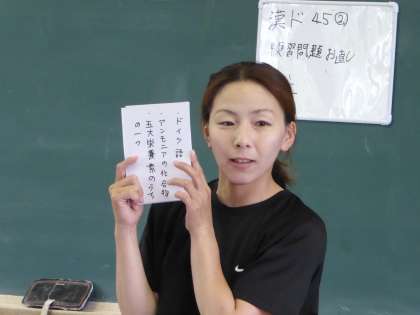 漢ド 45②
復習問題 お直し
・ドイツ語
・アンモニアの化合物
・五大栄養素のうち
の一つ